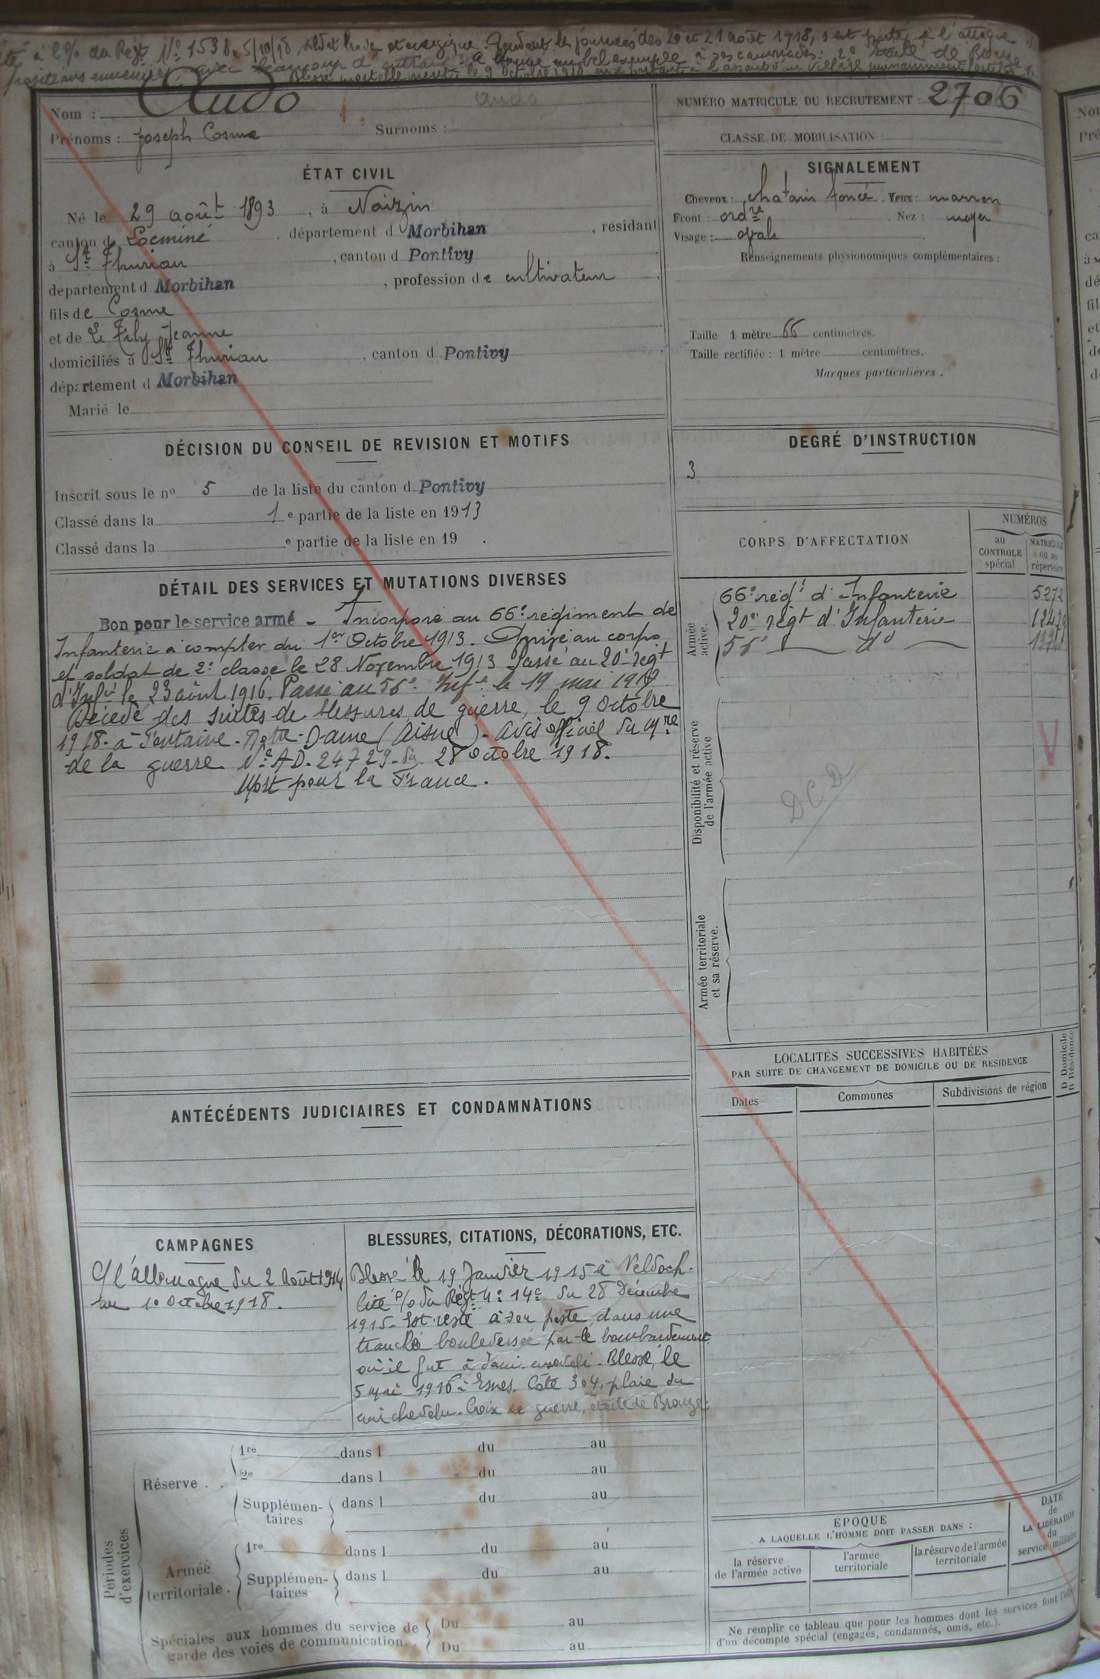 cité à l'O/ du Régt No 1538 5/10/18, soldat brave et énergique. Pendant les journées des 20 et 21 août 1918, s'est porté à l'attaque
avec beaucoup d'
Blessé mortellement le 9 octobre 1918 en partant à l'assaut d'un village
Nom : Audo
Audo
NUMÉRO MATRICULE DU RECRUTEMENT : 2706
Prénoms : Joseph Cosme Surnoms :
CLASSE DE MOBILISATION :
ÉTAT CIVIL
Né le 29 août 1893, à Naizin
canton de Locminé, département d Morbihan, résidant
à St Thurian, canton d Pontivy
département d Morbihan, profession de cultivateur
fils de Cosme
et de Le Fily Jeanne
domiciliés à St Thurian, canton d Pontivy
département d Morbihan
Marié le
SIGNALEMENT
Cheveux : chatain foncé Yeux : marron
Front : ordre Nez : moyen
Visage : ovale
Renseignements physionomiques complémentaires :
Taille 1 mètre 66 centimètres.
Taille rectifiée : 1 mètre centimètres.
Marques particulières.
DÉCISION DU CONSEIL DE REVISION ET MOTIFS
Inscrit sous le no 5 de la liste du canton d Pontivy
Classé dans la 1e partie de la liste en 1913
Classé dans la e partie de la liste en 19 .
DEGRÉ D'INSTRUCTION
3
DÉTAIL DES SERVICES ET MUTATIONS DIVERSES
Bon pour le service armé - Incorporé au 66e régiment de
Infanterie à compter du 1er Octobre 1913. Arrivé au corps
et soldat de 2e classe le 28 Novembre 1913. Passé au 20e régt
d'Infie le 23 août 1916. Passé au 55e Infie le 19 mai 1918
Décédé des suites de blessures de guerre, le 9 Octobre
1918 à Fontaine-Notre-Dame (Aisne). Avis officiel du Mre
de la guerre No AD. 24729 du 28 octobre 1918.
Mort pour la France.
CORPS D'AFFECTATION
NUMÉROS
au CONTROLE spécial
MATRICULE ou au répertoire
Armée active.
66e régt d'Infanterie 5272
20e régt d'Infanterie
55e — do —
Disponibilité et réserve de l'armée active
DCD
V
Armée territoriale et sa réserve.
LOCALITÉS SUCCESSIVES HABITÉES
PAR SUITE DE CHANGEMENT DE DOMICILE OU DE RÉSIDENCE
Dates
Communes
Subdivisions de région
D Domicile
R Résidence
ANTÉCÉDENTS JUDICIAIRES ET CONDAMNATIONS
CAMPAGNES
C/ l'allemagne du 2 Août 1914
au 10 Octobre 1918.
BLESSURES, CITATIONS, DÉCORATIONS, ETC.
Blessé le 19 Janvier 1915 à
Cité O/ du Régt No 14e du 28 Décembre
1915. Est resté à son poste dans une
tranchée bouleversée par le bombardement
où il fut à demi enseveli. Blessé le
5 mai 1916 à Esnes. Côte 304, plaie du
cuir chevelu. Croix de guerre, étoile de Bronze.
Périodes d'exercices
Réserve . .
1re dans l du au
2e dans l du au
Supplémentaires dans l du au
Armée territoriale .
1re dans l du au
Supplémentaires dans l du au
Spéciales aux hommes du service de garde des voies de communication..
Du au
Du au
EPOQUE
A LAQUELLE L'HOMME DOIT PASSER DANS :
la réserve de l'armée active
l'armée territoriale
la réserve de l'armée territoriale
DATE de LA LIBÉRATION du service militaire
Ne remplir ce tableau que pour les hommes dont les services font l'objet
d'un décompte spécial (engagés, condamnés, omis, etc.).